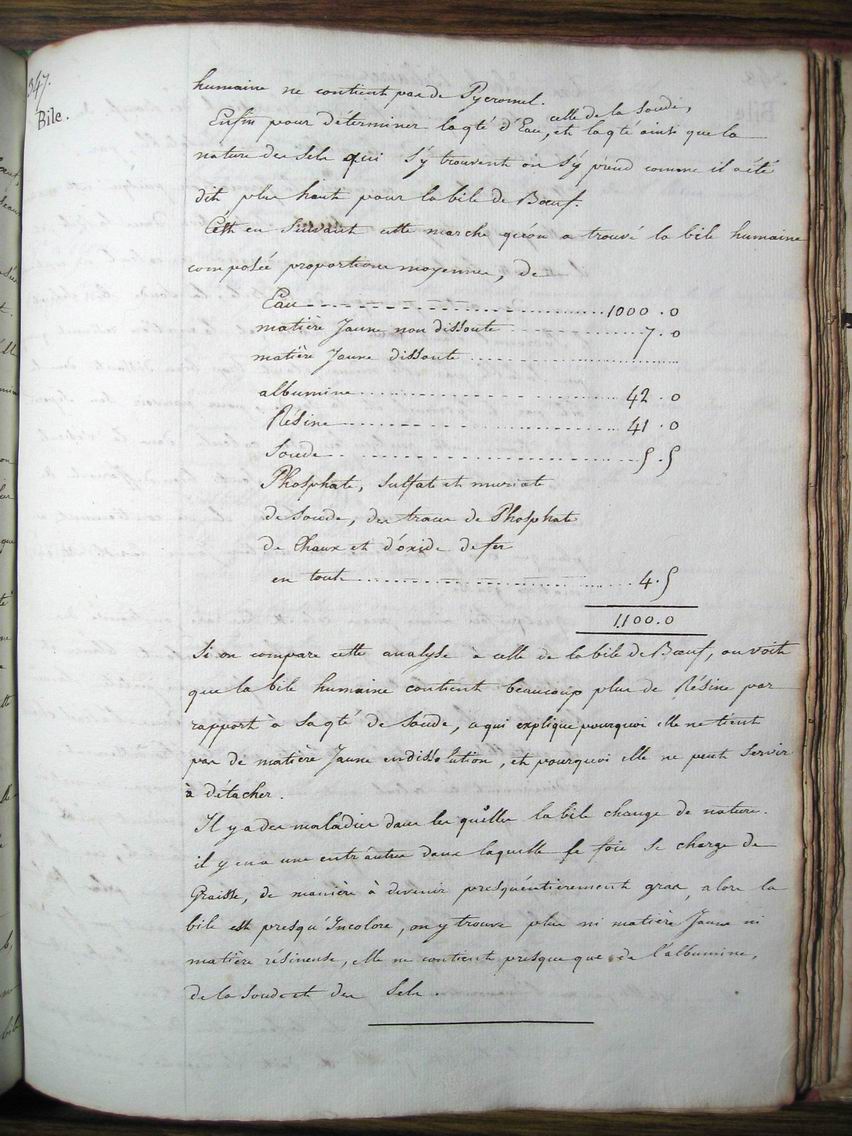 347.
Bile.
humaine ne contient pas de Pycromel.
celle de la Soude,
Enfin pour déterminer la qté d'Eau, et la qté ainsi que la
nature des Sels qui s'y trouvent on s'y prend comme il a été
dit plus haut pour la bile de Bœuf.
C'est en Suivant cette marche qu'on a trouvé la bile humaine
composée proportions moyennes, de
Eau 1000.0
matière Jaune non dissoute 7.0
matière Jaune dissoute
albumine 42.0
Résine 41.0
Soude 5.5
Phosphate, sulfate et muriate
de Soude, des traces de Phosphate
de Chaux et d'oxide de fer
en tout 4.5
1,100.0
Si on compare cette analyse à celle de la bile de Bœuf, on voit
que la bile humaine contient beaucoup plus de Résine par
rapport à sa qté de Soude, ce qui explique pourquoi elle ne tient
pas de matière Jaune en dissolution, et pourquoi elle ne peut Servir
à détacher.
Il y a des maladies dans les quelles la bile change de nature.
il y en a une entr'autres dans laquelle le foie se charge de
Graisse, de manière à devenir presqu'entièrement gras, alors la
bile est presqu'Incolore, on y trouve plus ni matière Jaune ni
matière résineuse, elle ne contient presque que de l'albumine,
de la Soude et des Sels.